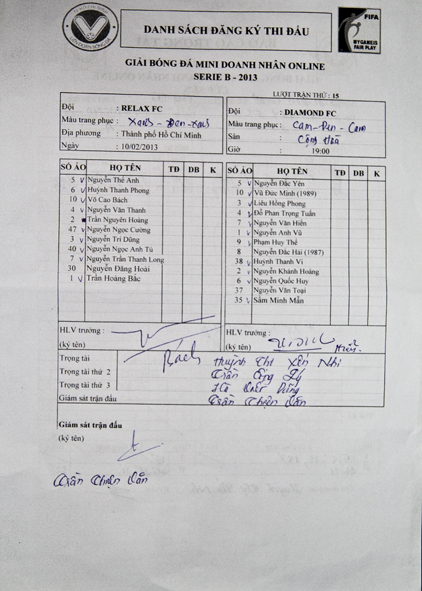 DANH SÁCH ĐĂNG KÝ THI ĐẤU
FIFA
MY GAME IS
FAIR PLAY
GIẢI BÓNG ĐÁ MINI DOANH NHÂN ONLINE
SERIE B - 2013
LƯỢT TRẬN THỨ : 15
Đội : RELAX FC
Màu trang phục : Xanh - Đen - Xanh
Địa phương : Thành phố Hồ Chí Minh
Ngày : 10/02/2013
Đội : DIAMOND FC
Màu trang phục : Cam - Đen - Cam
Sân : Cộng Hòa
Giờ : 19:00
SỐ ÁO HỌ TÊN TĐ DB K
5 Nguyễn Thế Anh
6 Huỳnh Thanh Phong
10 Võ Cao Bách
4 Nguyễn Văn Thanh
2 Trần Nguyên Hoàng
47 Nguyễn Ngọc Cường
3 Nguyễn Trí Dũng
40 Nguyễn Ngọc Anh Tú
7 Nguyễn Trần Thanh Long
30 Nguyễn Đăng Hoài
1 Trần Hoàng Bắc
SỐ ÁO HỌ TÊN TĐ DB K
5 Nguyễn Đắc Yên
10 Vũ Đức Minh (1989)
3 Liêu Hồng Phong
4 Đỗ Phan Trọng Tuấn
7 Nguyễn Văn Hiền
1 Nguyễn Anh Vũ
9 Phạm Huy Thể
8 Nguyễn Đắc Hải (1987)
38 Huỳnh Thanh Vi
2 Nguyễn Khánh Hoàng
6 Nguyễn Quốc Huy
37 Nguyễn Văn Toại
35 Sầm Minh Mẫn
HLV trưởng :
(ký tên)
Bách
HLV trưởng :
(ký tên)
Trọng tài Huỳnh Thị Yến Nhi
Trọng tài thứ 2 Trần Công Lý
Trọng tài thứ 3 Dũng
Giám sát trận đấu Trần Thiện Vẫn
Giám sát trận đấu
(ký tên)
Trần Thiện Vẫn